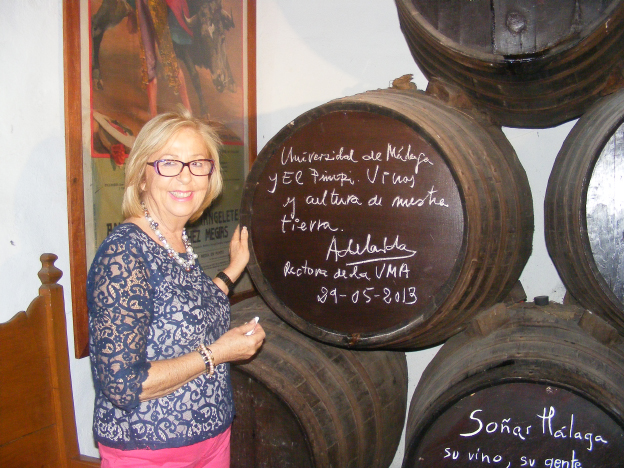 Universidad de Málaga
y El Pimpi. Vinos
y cultura de nuestra
tierra.
Adelaida
Rectora de la UMA
29-05-2013
Soñar Málaga
su vino, su gente